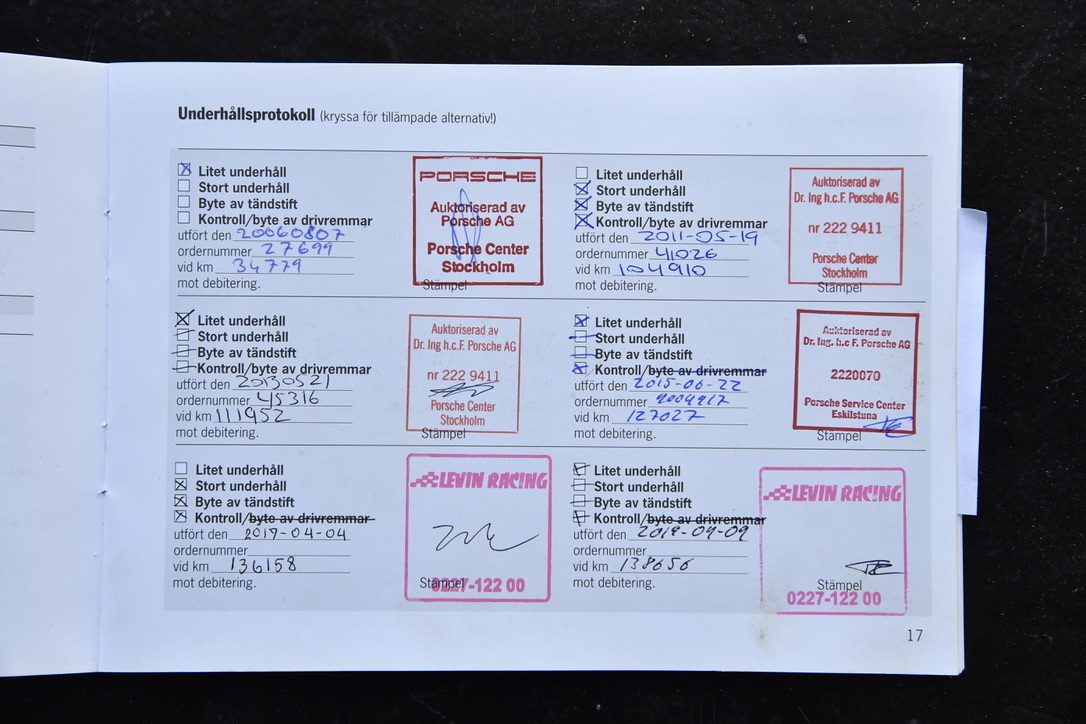 Underhållsprotokoll (kryssa för tillämpade alternativ!)
Litet underhåll
Stort underhåll
Byte av tändstift
Kontroll/byte av drivremmar
utfört den 20060807
ordernummer 27699
vid km 34779
mot debitering.
PORSCHE
Auktoriserad av
Porsche AG
Porsche Center
Stockholm
Stämpel
Litet underhåll
Stort underhåll
Byte av tändstift
Kontroll/byte av drivremmar
utfört den 2011-05-19
ordernummer 41026
vid km 104910
mot debitering.
Auktoriserad av
Dr. Ing h.c.F. Porsche AG
nr 222 9411
Porsche Center
Stockholm
Stämpel
Litet underhåll
Stort underhåll
Byte av tändstift
Kontroll/byte av drivremmar
utfört den 20130521
ordernummer 45316
vid km 111952
mot debitering.
Auktoriserad av
Dr. Ing h.c.F. Porsche AG
nr 222 9411
Porsche Center
Stockholm
Stämpel
Litet underhåll
Stort underhåll
Byte av tändstift
Kontroll/byte av drivremmar
utfört den 2015-06-22
ordernummer
vid km 127027
mot debitering.
Auktoriserad av
Dr. Ing. h.c F. Porsche AG
2220070
Porsche Service Center
Eskilstuna
Stämpel
Litet underhåll
Stort underhåll
Byte av tändstift
Kontroll/byte av drivremmar
utfört den 2017-04-04
ordernummer
vid km 136158
mot debitering.
LEVIN RACING
Stämpel
0227-122 00
Litet underhåll
Stort underhåll
Byte av tändstift
Kontroll/byte av drivremmar
utfört den
ordernummer
vid km 138656
mot debitering.
LEVIN RACING
Stämpel
0227-122 00
17